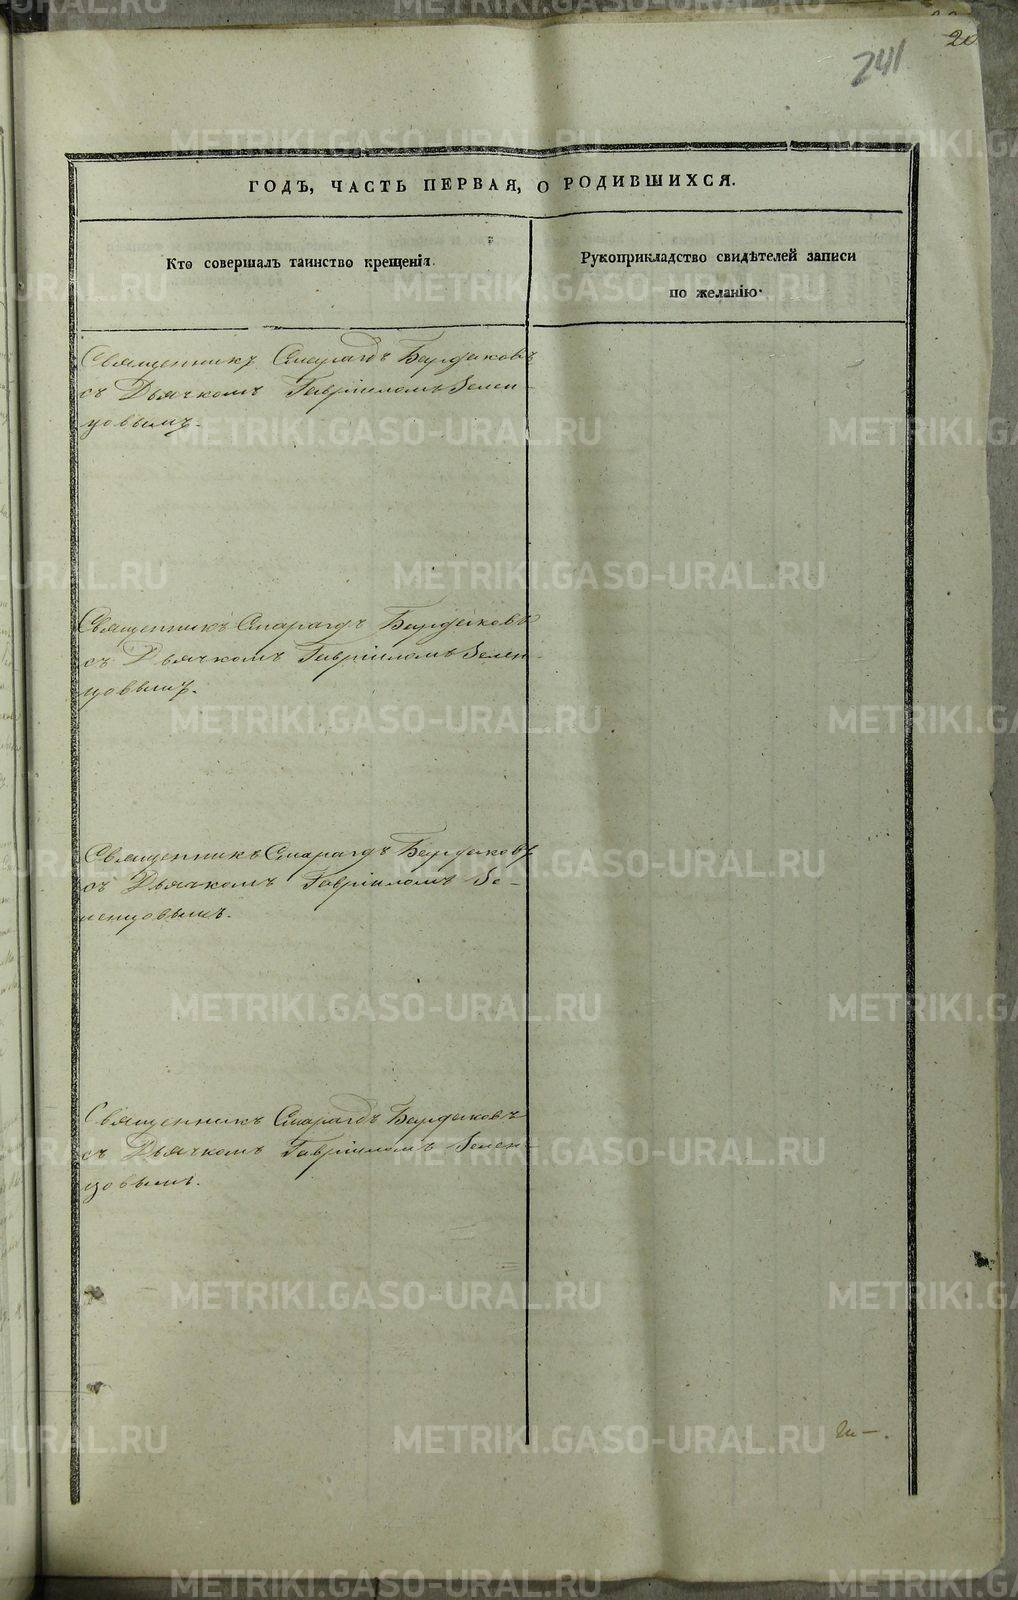 241
20
ГОДЪ, ЧАСТЬ ПЕРВАЯ, О РОДИВШИХСЯ.
Кто совершалъ таинство крещенія.
Рукоприкладство свидѣтелей записи
по желанію.
Священникъ Смарагдъ Бирдюковъ
съ Дьячкомъ Гавріиломъ Зелен-
цовымъ.
Священникъ Смарагдъ Бирдюковъ
съ Дьячкомъ Гавріиломъ Зелен-
цовымъ.
Священникъ Смарагдъ Бирдюковъ
съ Дьячкомъ Гавріиломъ Зе-
ленцовымъ.
Священникъ Смарагдъ Бирдюковъ
съ Дьячкомъ Гавріиломъ Зелен-
цовымъ.
METRIKI.GASO-URAL.RU